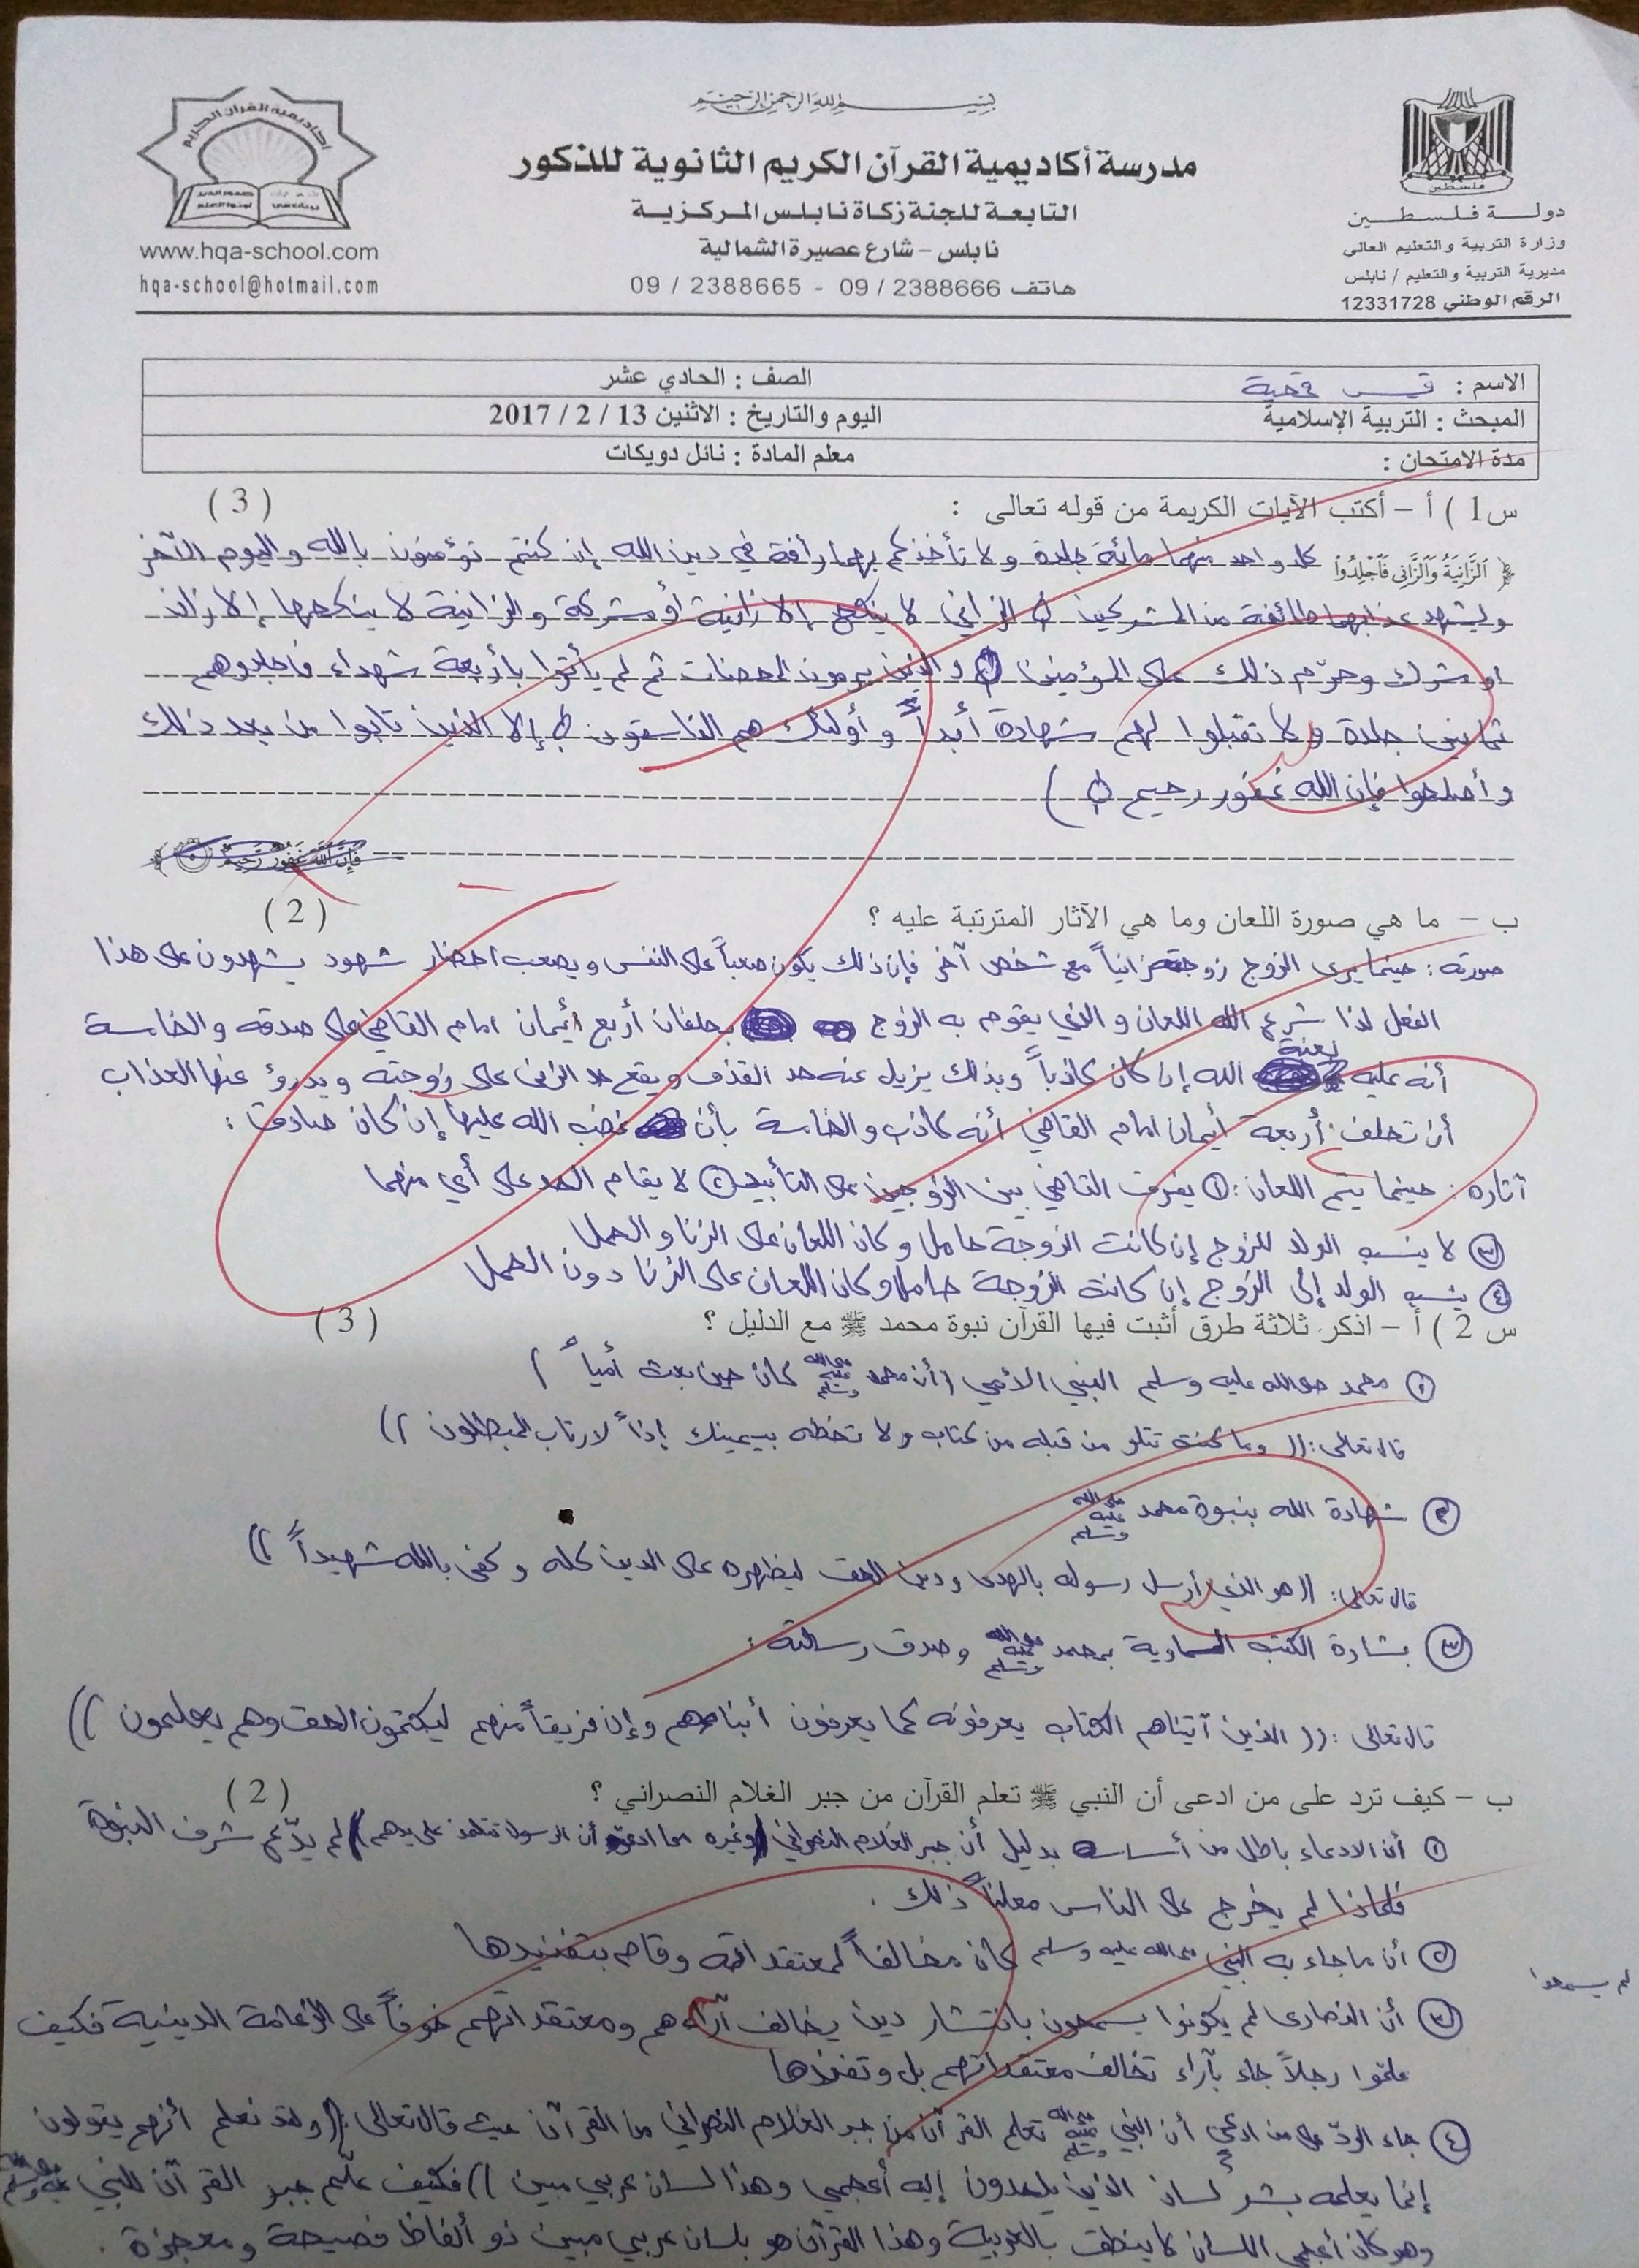 بسم الله الرحمن الرحيم
أكاديمية القرآن الكريم
www.hqa-school.com
hqa-school@hotmail.com
مدرسة أكاديمية القرآن الكريم الثانوية للذكور
التابعة للجنة زكاة نابلس المركزية
نابلس - شارع عصيرة الشمالية
هاتف 2388666 / 09 - 2388665 / 09
فلسطين
دولة فلسطين
وزارة التربية والتعليم العالي
مديرية التربية والتعليم / نابلس
الرقم الوطني 12331728
الاسم : قيس الصف : الحادي عشر
المبحث : التربية الإسلامية اليوم والتاريخ : الاثنين 13 / 2 / 2017
مدة الامتحان : معلم المادة : نائل دويكات
س1 ) أ - أكتب الآيات الكريمة من قوله تعالى : ( 3 )
﴿ ٱلزَّانِيَةُ وَٱلزَّانِي فَٱجْلِدُوا كل واحد منهما مائة جلدة ولا تأخذكم بهما رأفة في دين الله إن كنتم تؤمنون بالله واليوم الآخر
وليشهد عذابهما طائفة من المشركين الزاني لا ينكح إلا زانية أو مشركة والزانية لا ينكحها إلا زان
او مشرك وحرّم ذلك على المؤمنين والذين يرمون المحصنات ثم لم يأتوا بأربعة شهداء فاجلدوهم
ثمانين جلدة ولا تقبلوا لهم شهادة أبداً وأولئك هم الفاسقون إلا الذين تابوا من بعد ذلك
وأصلحوا فإن الله غفور رحيم )
فَإِنَّ ٱللَّهَ غَفُورٌ رَّحِيمٌ ﴾
ب - ما هي صورة اللعان وما هي الآثار المترتبة عليه ؟ ( 2 )
صورته : حينما يرى الزوج زوجته زانياً مع شخص آخر فإن ذلك يكون صعباً على النفس ويصعب احضار شهود يشهدون على هذا
الفعل لذا شرع الله اللعان والذي يقوم به الزوج بحلفان أربع أيمان امام القاضي على صدقه والخامسة
أنه عليه لعنة الله إن كان كاذباً وبذلك يزيل عنه حد القذف ويقع حد الزنى على زوجته ويدرؤ عنها العذاب
أن تحلف أربعة أيمان امام القاضي أنه كاذب والخامسة بأن غضب الله عليها إن كان صادق :
آثاره : حينما يتم اللعان : ① يفرق القاضي بين الزوجين على التأبيد ② لا يقام الحد على أي منهما
③ لا ينسب الولد للزوج إن كانت الزوجة حامل وكان اللعان على الزنا والحمل
④ ينسب الولد إلى الزوج إن كانت الزوجة حامل وكان اللعان على الزنا دون الحمل
س 2 ) أ - اذكر ثلاثة طرق أثبت فيها القرآن نبوة محمد ﷺ مع الدليل ؟ ( 3 )
① محمد صلى الله عليه وسلم النبي الأمي ( أن محمد صلى الله عليه وسلم كان حين بعث أمياً )
قال تعالى : (( وما كنت تتلو من قبله من كتاب ولا تخطه بيمينك إذاً لارتاب المبطلون ))
② شهادة الله بنبوة محمد صلى الله عليه وسلم
قال تعالى : (( هو الذي أرسل رسوله بالهدى ودين الحق ليظهره على الدين كله وكفى بالله شهيداً ))
③ بشارة الكتب السماوية بمحمد صلى الله عليه وسلم وصدق رسالته :
قال تعالى : (( الذين آتيناهم الكتاب يعرفونه كما يعرفون أبناءهم وإن فريقاً منهم ليكتمون الحق وهم يعلمون ))
ب - كيف ترد على من ادعى أن النبي ﷺ تعلم القرآن من جبر الغلام النصراني ؟ ( 2 )
① أن الادعاء باطل من أساسه بدليل أن جبر الغلام النصراني وغيره مما ادعوا أن الرسول تتلمذ على يدهم لم يدّعِ شرف النبوة
فلماذا لم يخرج على الناس معلناً ذلك .
② أن ما جاء به النبي صلى الله عليه وسلم كان مخالفاً لمعتقداته وقام بتفنيدها
لم يسمحوا
③ أن النصارى لم يكونوا يسمحون بانتشار دين يخالف آراءهم ومعتقداتهم خوفاً على الزعامة الدينية فكيف
علموا رجلاً جاء بآراء تخالف معتقداتهم بل وتفندها
④ جاء الردّ على من ادعى أن النبي صلى الله عليه وسلم تعلم القرآن من جبر الغلام النصراني من القرآن حيث قال تعالى : (( ولقد نعلم أنهم يقولون
إنما يعلمه بشر لسان الذين يلحدون إليه أعجمي وهذا لسان عربي مبين )) فكيف علّم جبر القرآن للنبي صلى الله عليه وسلم
وهو كان أعجمي اللسان لا ينطق بالعربية وهذا القرآن هو بلسان عربي مبين ذو ألفاظ فصيحة ومعجزة .